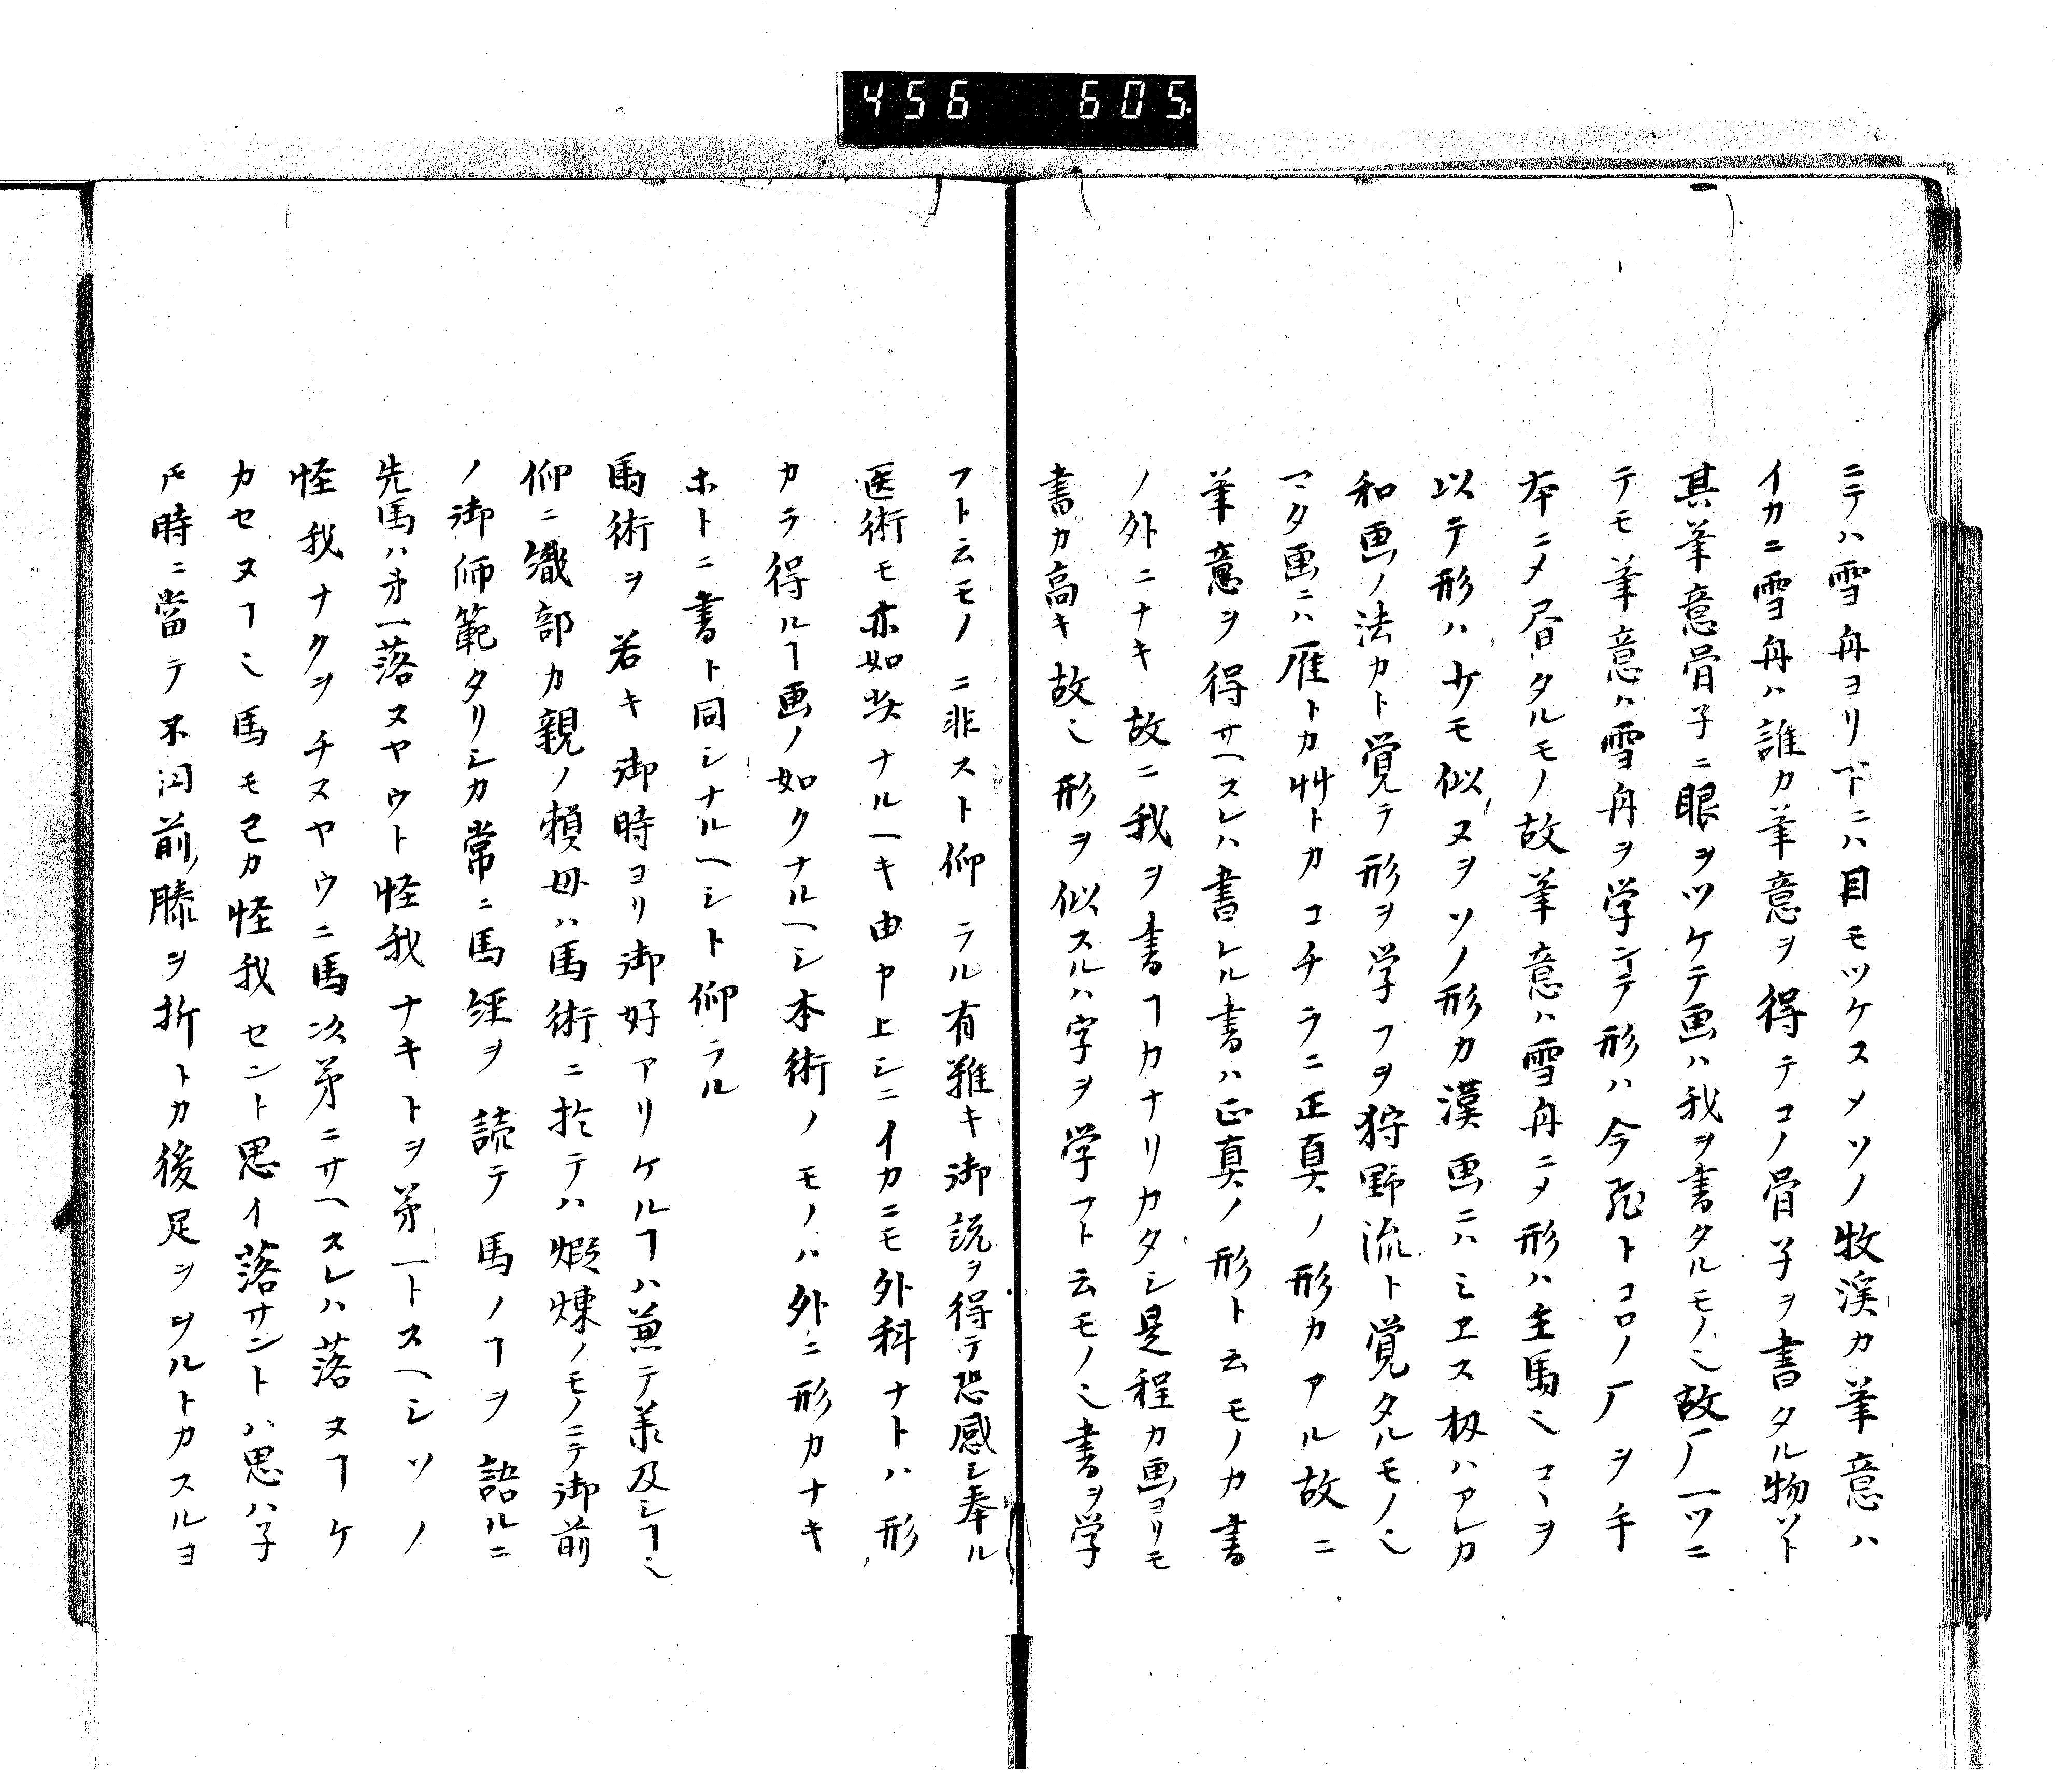 456 605.
ニテハ雪舟ヨリ下ニハ目モツケスメソノ牧渓カ筆意ハ
イカニ雪舟ハ誰カ筆意ヲ得テコノ骨子ヲ書タル物ソト
其筆意骨子ニ眼ヲツケテ画ハ我ヲ書タルモノ也故ニ一ツニ
テモ筆意ハ雪舟ヲ学ンテ形ハ今飛トコロノ厂ヲ手
本ニメ居タルモノ故筆意ハ雪舟ニメ形ハ生馬也コヽヲ
以テ形ハ少モ似ヌヲソノ形カ漢画ニハミエス扨ハアレカ
和画ノ法カト覚テ形ヲ学フヲ狩野流ト覚タルモノ也
マタ画ニハ雁トカ艸トカコチラニ正真ノ形カアル故ニ
筆意ヲ得サヘスレハ書レル書ハ正真ノ形ト云モノカ書
ノ外ニナキ故ニ我ヲ書ヿカナリカタシ是程カ画ヨリモ
書カ高キ故也形ヲ似スルハ字ヲ学フト云モノ也書ヲ学
フト云モノニ非スト仰ラル有難キ御説ヲ得テ恐感シ奉ル
医術モ亦如此ナルヘキ由申上シニイカニモ外科ナトハ形
カラ得ルヿ画ノ如クナルヘシ本術ノモノハ外ニ形カナキ
ホトニ書ト同シナルヘシト仰ラル
馬術ヲ若キ御時ヨリ御好アリケルヿハ兼テ承及シヿ也
仰ニ織部カ親ノ頼母ハ馬術ニ於テハ煆煉ノモノニテ御前
ノ御師範タリシカ常ニ馬経ヲ読テ馬ノヿヲ語ルニ
先馬ハ第一落ヌヤウト怪我ナキトヲ第一トスヘシソノ
怪我ナクヲチヌヤウニ馬次第ニサヘスレハ落ヌヿケ
カセヌヿ也馬モ己カ怪我セント思イ落サントハ思ハ子
𪜈時ニ當テ不図前膝ヲ折トカ後足ヲヲルトカスルヨ